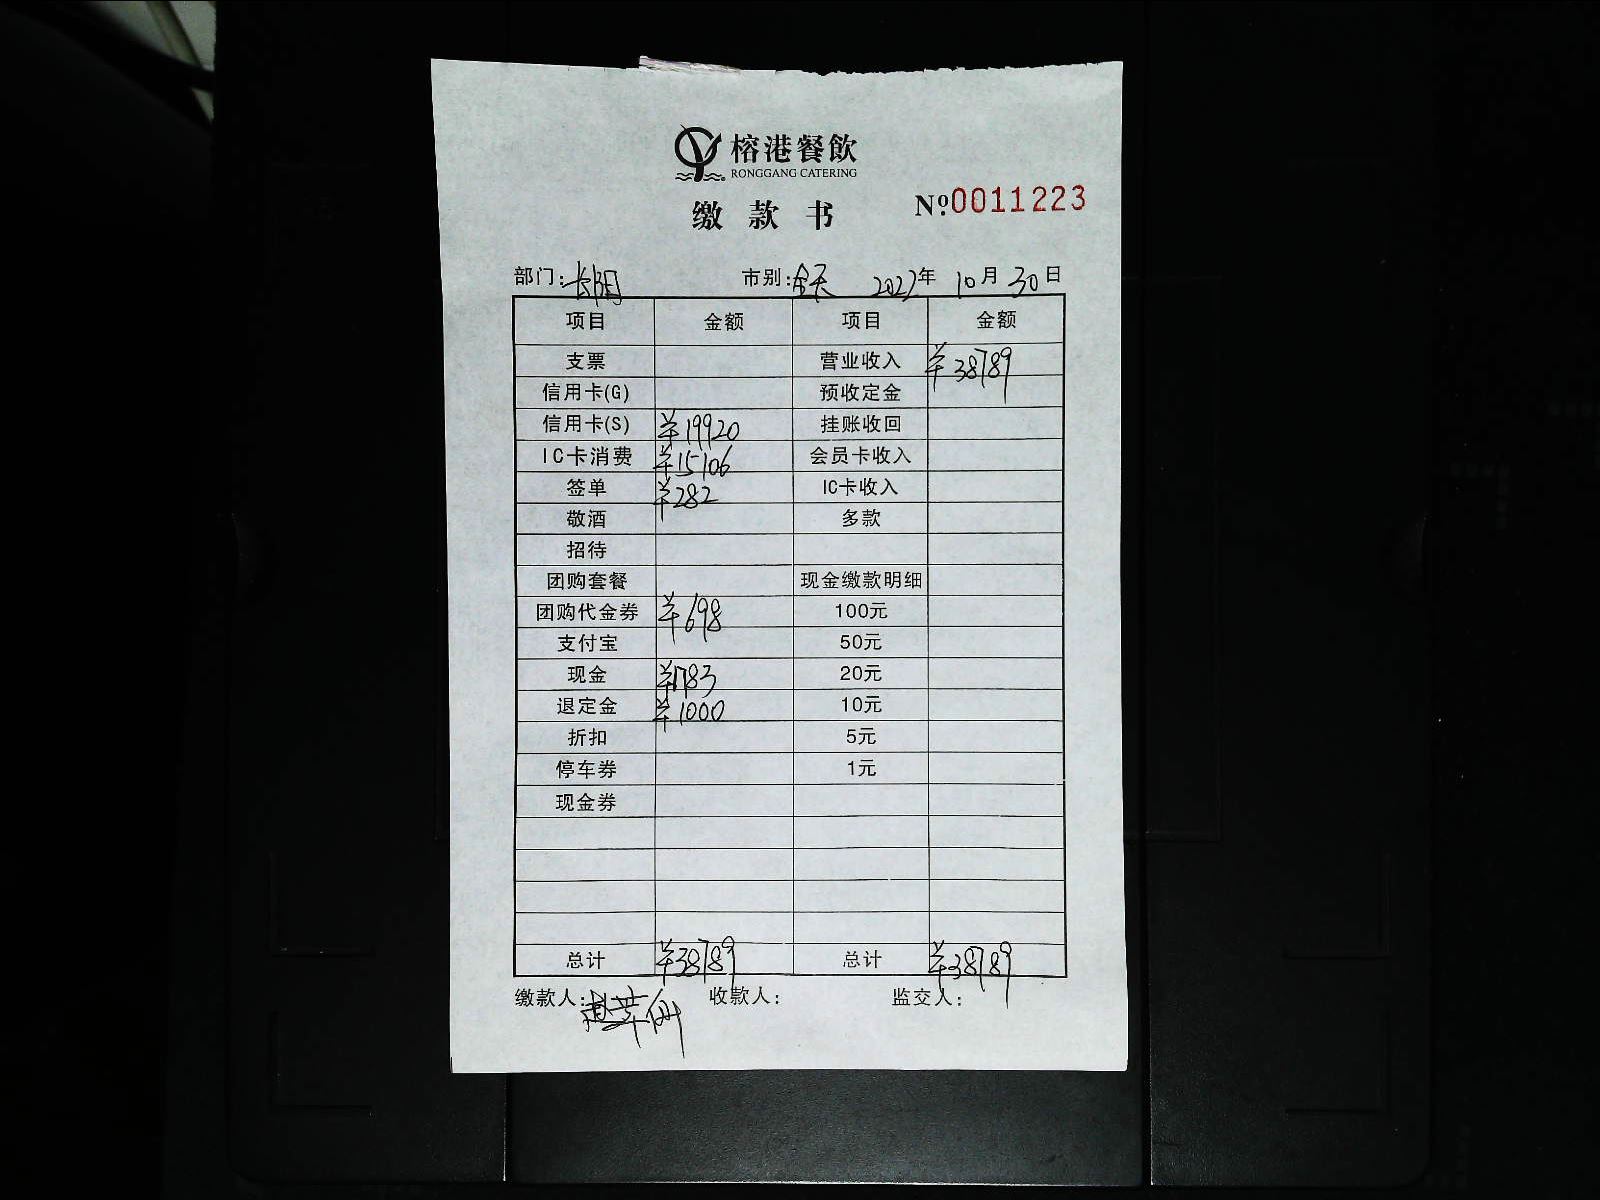 榕港餐飲
RONGGANG CATERING
缴款书 №0011223
部门:长阳 市别:全天 2022年 10月 30日
项目 金额 项目 金额
支票 营业收入 ¥38789
信用卡(G) 预收定金
信用卡(S) ¥19920 挂账收回
IC卡消费 ¥15106 会员卡收入
签单 ¥282 IC卡收入
敬酒 多款
招待
团购套餐 现金缴款明细
团购代金券 ¥698 100元
支付宝 50元
现金 ¥1783 20元
退定金 ¥1000 10元
折扣 5元
停车券 1元
现金券
总计 ¥38789 总计 ¥38789
缴款人: 收款人: 监交人: